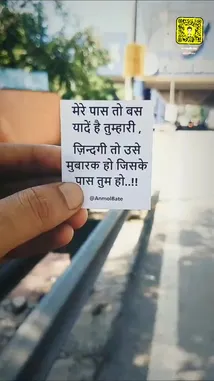 मेरे पास तो बस
यादें है तुम्हारी ,
ज़िन्दगी तो उसे
मुबारक हो जिसके
पास तुम हो..!!
@AnmolBate